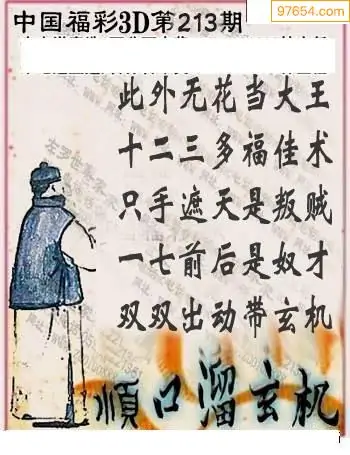 97654.com
中国福彩3D第213期
此外无花当大王
十二三多福佳术
只手遮天是叛贼
一七前后是奴才
双双出动带玄机
顺口溜玄机